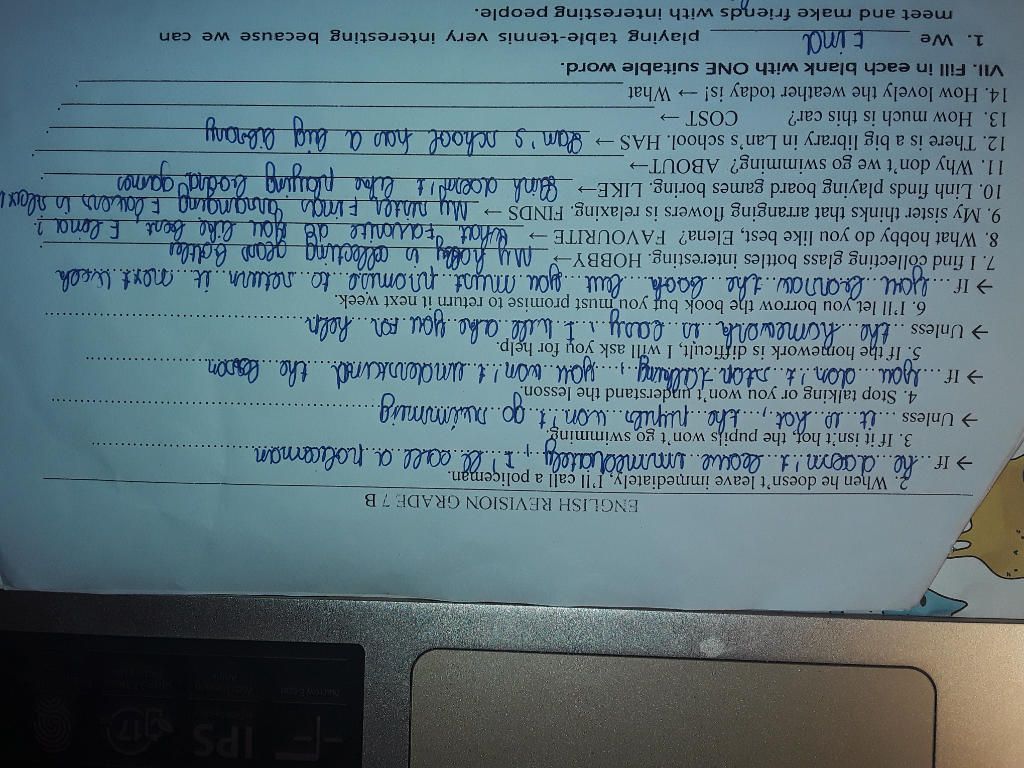 ENGLISH REVISION GRADE 7 B
2. When he doesn't leave immediately, I'll call a policeman.
→ If ... he doesn't leave immediately, I'll call a policeman
3. If it isn't hot, the pupils won't go swimming.
→ Unless ... it is hot, the pupils won't go swimming
4. Stop talking or you won't understand the lesson.
→ If ... you don't stop talking, you won't understand the lesson
5. If the homework is difficult, I will ask you for help.
→ Unless ... the homework is easy, I will ake you for help
6. I'll let you borrow the book but you must promise to return it next week.
→ If ... you borrow the book but you must promise to return it next week
7. I find collecting glass bottles interesting. HOBBY→ My hobby is collecting glass bottles
8. What hobby do you like best, Elena? FAVOURITE → What favourite do you like best, Elena?
9. My sister thinks that arranging flowers is relaxing. FINDS → My sister Finds arranging Flowers is
10. Linh finds playing board games boring. LIKE→ Linh doesn't like playing board games
11. Why don't we go swimming? ABOUT→
12. There is a big library in Lan's school. HAS → Lan's school has a big library
13. How much is this car? COST →
14. How lovely the weather today is! → What
VII. Fill in each blank with ONE suitable word.
1. We Find playing table-tennis very interesting because we can
meet and make friends with interesting people.
IPS